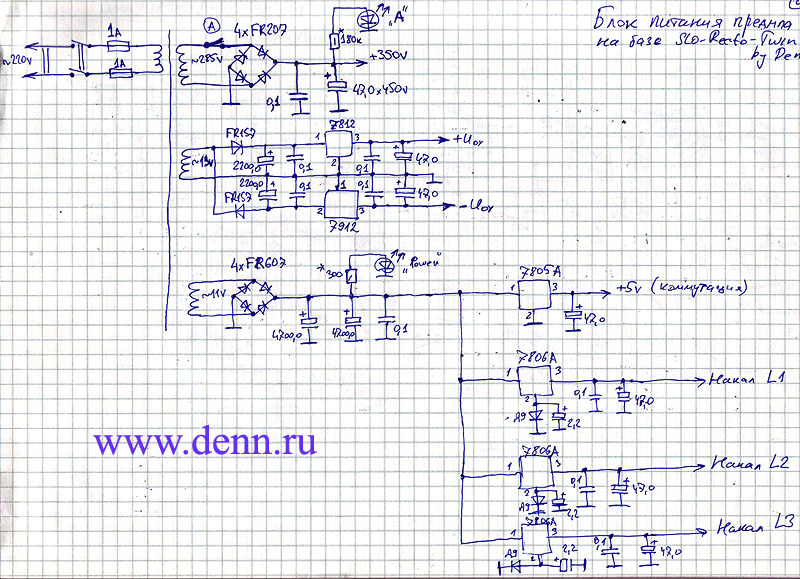 Блок питания предпа
на базе SLO-Recto-Twin
by Den
1А
А
4xFR207
180к
"А"
~220V
~285V
+350V
1А
0,1
47,0x450V
FR157
7812
1
3
2
+Uоу
~19V
2200,0
0,1
0,1
47,0
2200,0
0,1
0,1
47,0
FR157
1
2
3
-Uоу
7912
4xFR607
300
"Power"
~11V
7805А
1
3
2
+5V (коммутация)
47,0
4700,0
4700,0
0,1
7806А
1
3
2
Накал L1
0,1
47,0
Д9
2,2
www.denn.ru
7806А
1
3
2
Накал L2
0,1
47,0
Д9
2,2
7806А
1
3
2
Накал L3
0,1
47,0
Д9
2,2